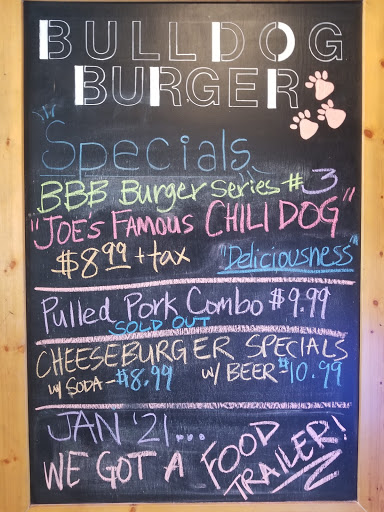 BULLDOG
BURGER
Specials
BBB Burger Series #3
"JOE'S FAMOUS CHILI DOG"
$8.99 + tax "Deliciousness"
Pulled Pork Combo $9.99
SOLD OUT
CHEESEBURGER SPECIALS
w/ SODA - $8.99 w/ BEER - $10.99
JAN '21...
WE GOT A FOOD
TRAILER!